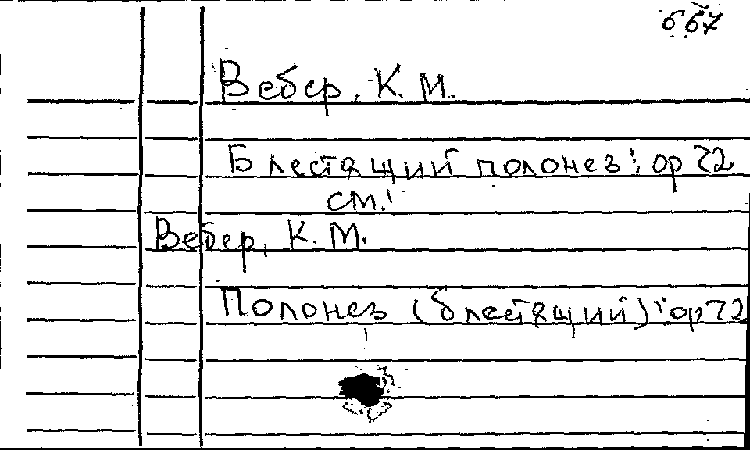 667
Вебер, К. М.
Блестящий полонез: ор 72
см.:
Вебер, К. М.
Полонез (блестящий): ор 72